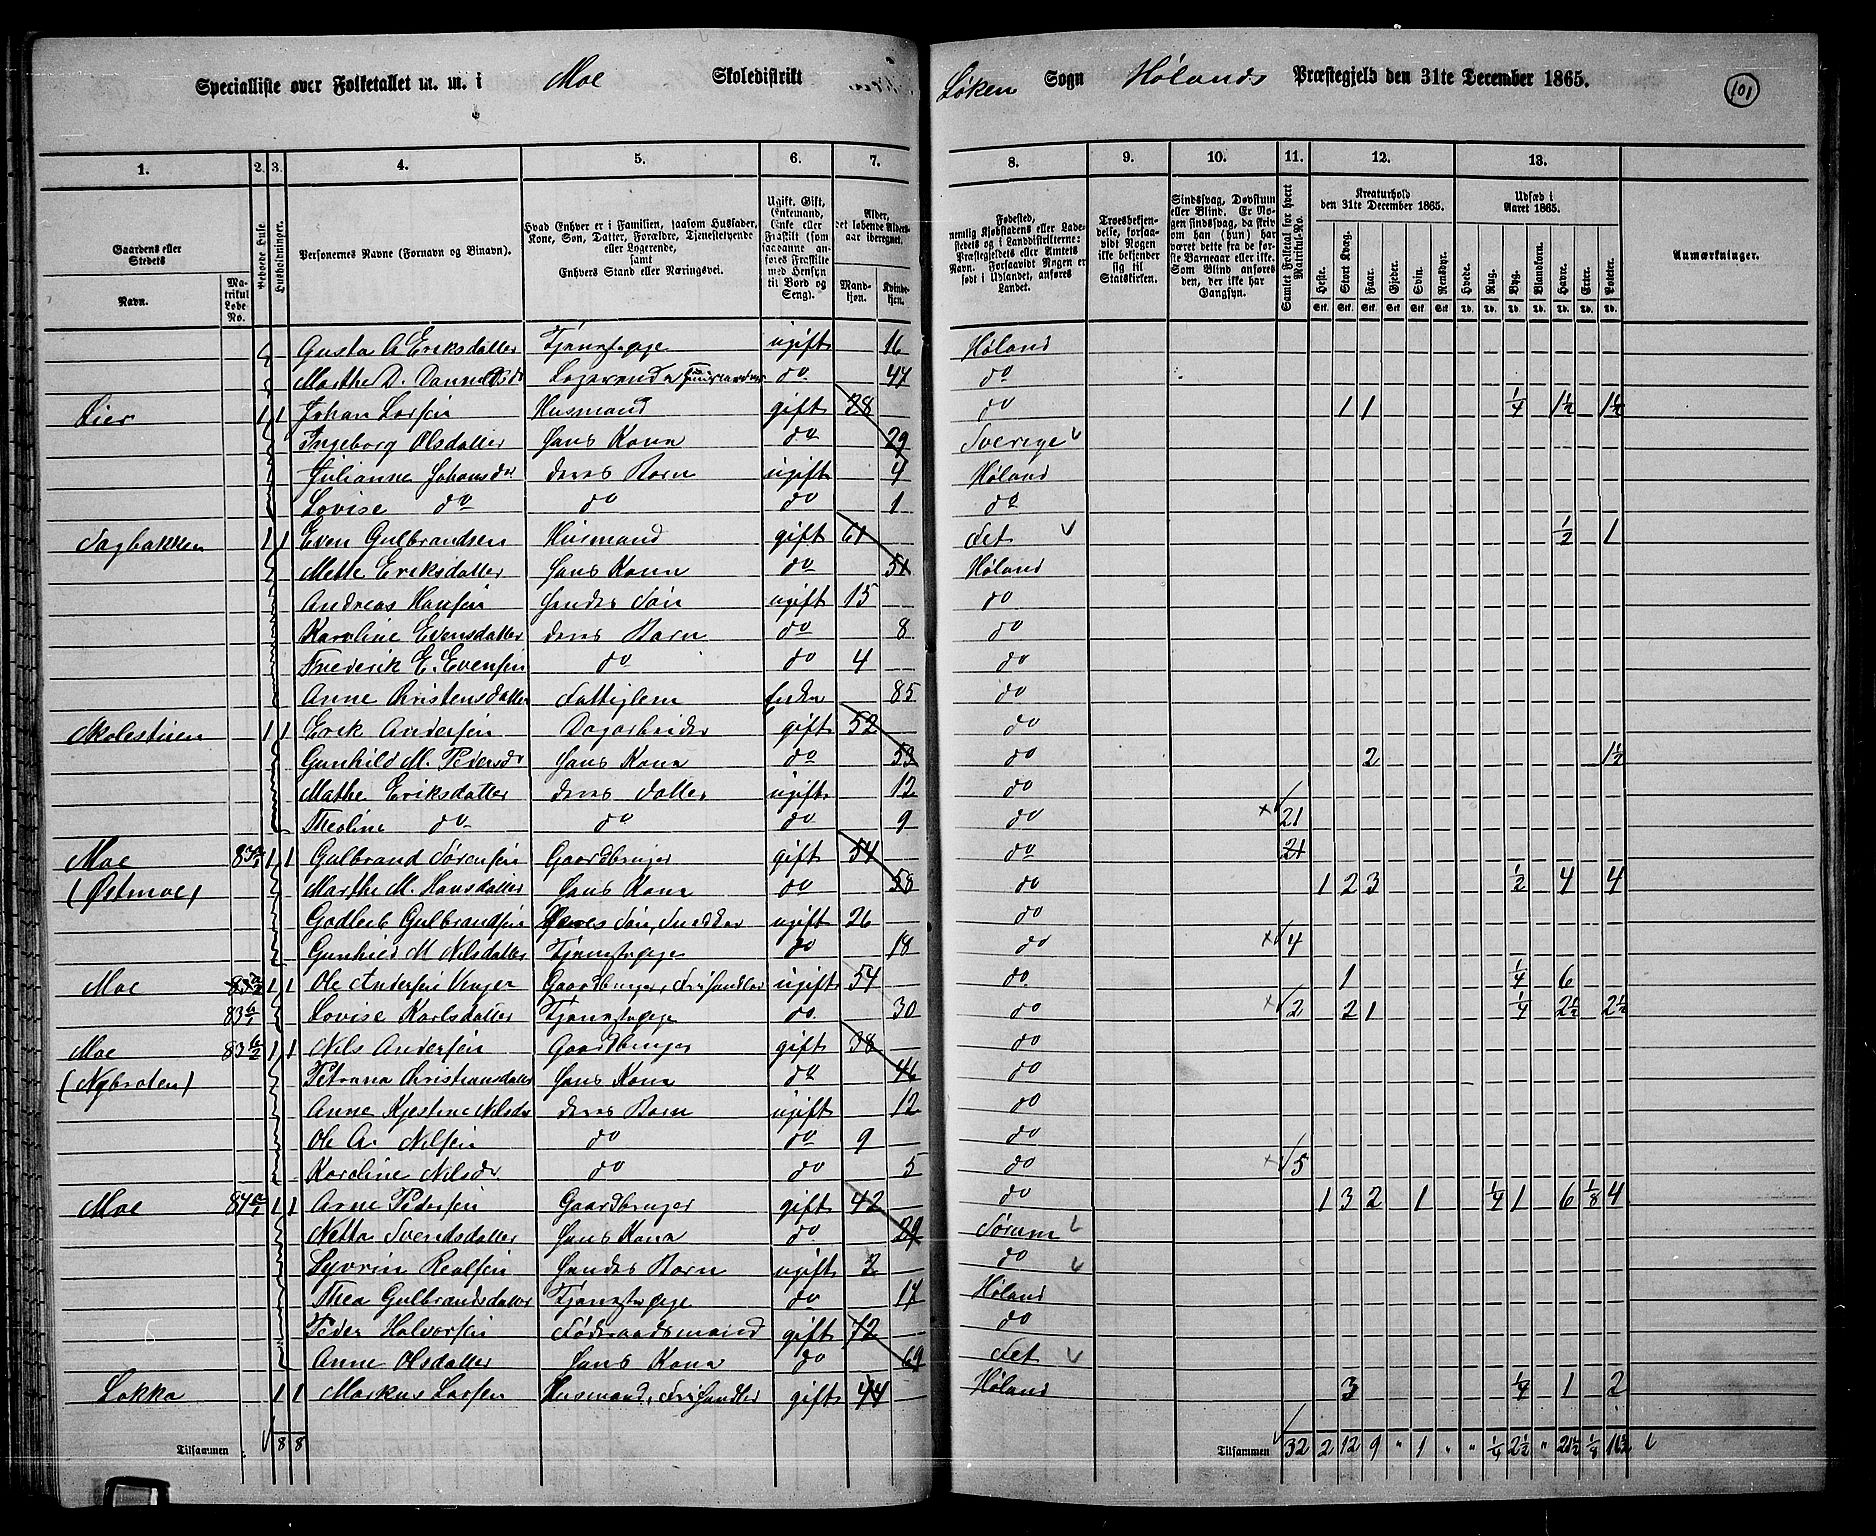 Specialliste over Folketallet m. m. i Moe Skoledistrikt Løken Sogn Hølands Præstegjeld den 31te December 1865. 101
1. 2. 3. 4. 5. 6. 7. 8. 9. 10. 11. 12. 13.
Gaardens eller Stedets Navn. Matrikul Løbe-No. Beboede Huse. Husholdninger. Personernes Navne (Fornavn og Binavn). Hvad Enhver er i Familien, saasom Husfader, Kone, Søn, Datter, Forældre, Tjenestetyende eller Logerende, samt Enhvers Stand eller Næringsvei. Alder, det løbende Aldersaar iberegnet. Mandkjøn. Kvindekjøn.
Samlet Folketal for hvert Matrikul-No. Kreaturhold den 31te December 1865. Udsæd i Aaret 1865. Anmærkninger.
Heste. Stort Kvæg. Faar. Gjeder. Svin. Rensdyr. Hvede. Rug. Byg. Blandkorn. Havre. Erter. Poteter.
Gusta A Eriksdatter Tjenestepige ugift 16 Høland
Marthe D. Logerende do 47 do
Lier 1 1 Johan Larsen Husmand gift 28 do 1 1 1/4 1½ 1½
Ingeborg Olsdatter Hans Kone do 29 Sverige
Julianne Johansdr deres Barn ugift 4 Høland
Lovise do do do 1 do
Sagbakken 1 1 Even Gulbrandsen Husmand gift 61 Fet ½ 1
Mette Eriksdatter Hans Kone do 51 Høland
Andreas Hansen Hendes Søn ugift 15 do
Karoline Evensdatter deres Barn do 8 do
Frederik E. Evensen do do 4 do
Anne Christensdatter Fattiglem Enke 85 do
Skolestuen 1 1 Erik Andersen Dagarbeider gift 52 do
Gunhild M. Pedersdr Hans Kone do 53 do 2 1½
Mathe Eriksdatter deres Datter ugift 12 do
Theoline do do do 9 do 21
Moe 83 1 1 Gulbrand Sørensen Gaardbruger gift 54 do 21
(Østmoe) Marthe M. Hansdatter Hans Kone do 58 do 1 2 3 ½ 4 4
Godleib Gulbrandsen deres Søn, Snedker ugift 26 do
Gunhild M Nilsdatter Tjenestepige do 18 do 4
Moe 83 1 1 Ole Andersen Gaardbruger, Frihandler ugift 54 do 1 1/4 6
83 Lovise Karlsdatter Tjenestepige do 30 do 2 2 1 1/4 2½ 2½
Moe 83 1 1 Nils Andersen Gaardbruger gift 38 do
(Nybroten) Petrana Christiansdatter Hans Kone do 46 do
Anne Kjestine Nilsdr deres Barn ugift 12 do
Ole A. Nilsen do do 9 do
Karoline Nilsdr do do 5 do 5
Moe 84 1 1 Arne Pedersen Gaardbruger gift 42 do 1 3 2 1 1/4 1 6 1/8 4
Netta Svendsdatter Hans Kone do 29 Sørum
Syvrin Hendes Barn ugift 3 do
Thea Gulbrandsdatter Tjenestepige do 17 Høland
Peder Halvorsen Føderaadsmand gift 72 do
Anne Olsdatter Hans Kone do 69 Fet
Løkka 1 1 Markus Larsen Husmand, Frihandler gift 44 Høland 3 1/4 1 2
Tilsammen 8 8 Tilsammen 32 2 12 9 " 1 " " 1/4 2½ " 21½ 1/8